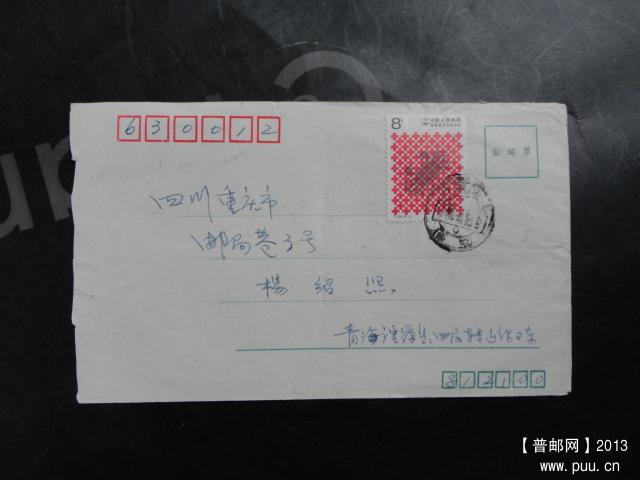 630012
8分
中国人民邮政
贴邮票
四川重庆市
邮局巷3号
楊绍熙
青海湟源县
812100
【普邮网】2013
www.puu.cn